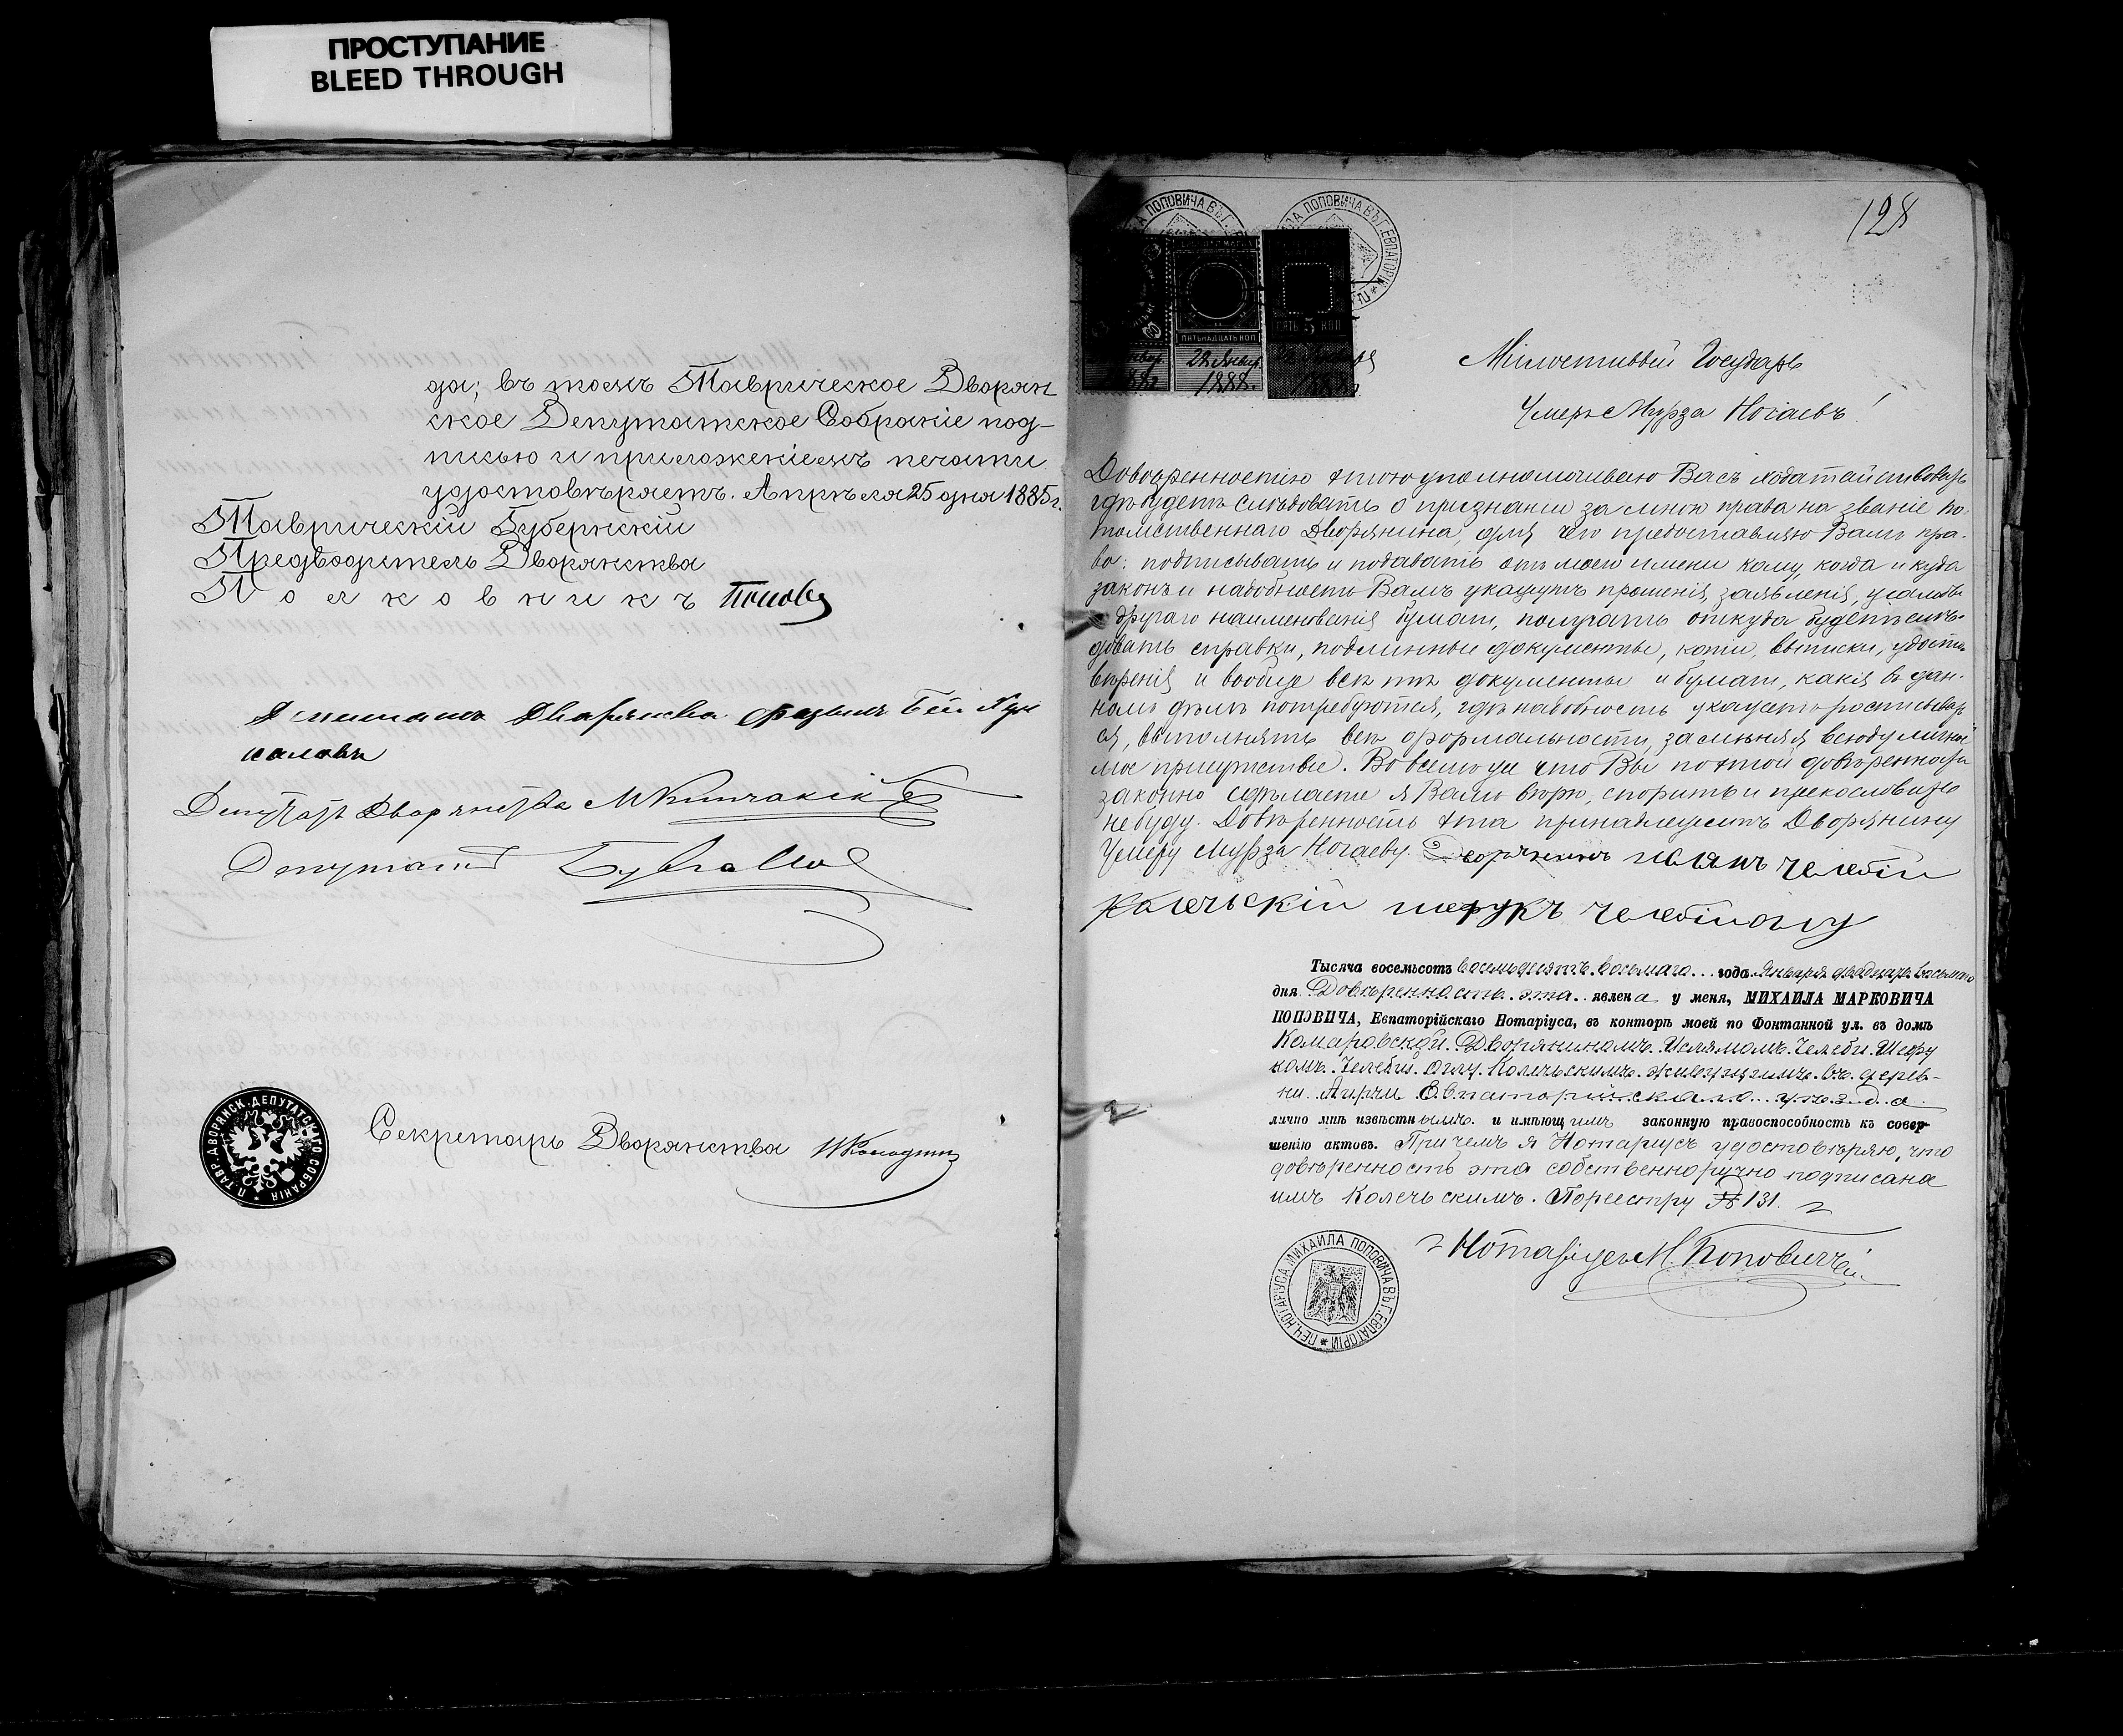 ПРОСТУПАНИЕ
BLEED THROUGH
да; въ томъ Таврическое Дворян
ское Депутатское Собраніе под-
писью и приложеніемъ печати
удостовѣряетъ. Апрѣля 25 дня 1885 г.
Таврическій Губернскій
Предводитель Дворянства
Полковникъ Поповъ
Депутатъ Дворянства
Депутатъ Дворянства
Депутатъ
П. ТАВР. ДВОРЯНСК. ДЕПУТАТСКАГО СОБРАНІЯ
Секретарь Дворянства
128
ПЯТЬНАДЦАТЬ КОП
ПЯТЬ 5 КОП
28 Январ.
1888.
Милостивый Государь
Умеръ Мурза Ногаевъ!
Довѣренностію этою уполномочиваю Васъ ходатайствовать
гдѣ будетъ слѣдовать о признаніи за мною права на званіе по-
томственнаго Дворянина, для чего предоставляю Вамъ пра-
во: подписывать и подавать отъ моего имени кому, когда и куда
законъ и надобность Вамъ укажутъ прошенія, заявленія,
и другаго наименованія бумаги, получать откуда будетъ слѣ-
довать справки, подлинные документы, копіи, выписки, удосто
вѣренія и вообще всѣ тѣ документы и бумаги, какія въ дан-
номъ дѣлѣ потребуются, гдѣ надобность укажетъ росписывать
ся, выполнять всѣ формальности, замѣняя всюду личное
мое присутствіе. Во всемъ же что Вы по этой довѣренности
законно сдѣлаете я Вамъ вѣрю, спорить и прекословить
не буду. Довѣренность эта принадлежитъ Дворянину
Умеру Мурза Ногаеву. Дворянинъ Ислямъ Челеби
Колечьскій Шефукъ Челеби оглу
Тысяча восемьсотъ восемьдесятъ восьмаго года Января двадцать восьмаго
дня Довѣренность эта явлена у меня, МИХАИЛА МАРКОВИЧА
ПОПОВИЧА, Евпаторійскаго Нотаріуса, въ конторѣ моей по Фонтанной ул. въ домѣ
Комаровской Дворяниномъ Ислямомъ Челеби Шефу
комъ Челеби оглу Колечьскимъ живущимъ въ дерев-
ни Аирчи Евпаторійскаго уѣзда
лично мнѣ извѣстнымъ и имѣющимъ законную правоспособность къ совер-
шенію актовъ. При чемъ я Нотариусъ удостовѣряю, что
довѣренность эта собственноручно подписана
имъ Колечьскимъ. По реестру № 131.
Нотаріусъ М. Поповичъ
ПЕЧ. НОТАРІУСА МИХАИЛА ПОПОВИЧА ВЪ Г. ЕВПАТОРІИ